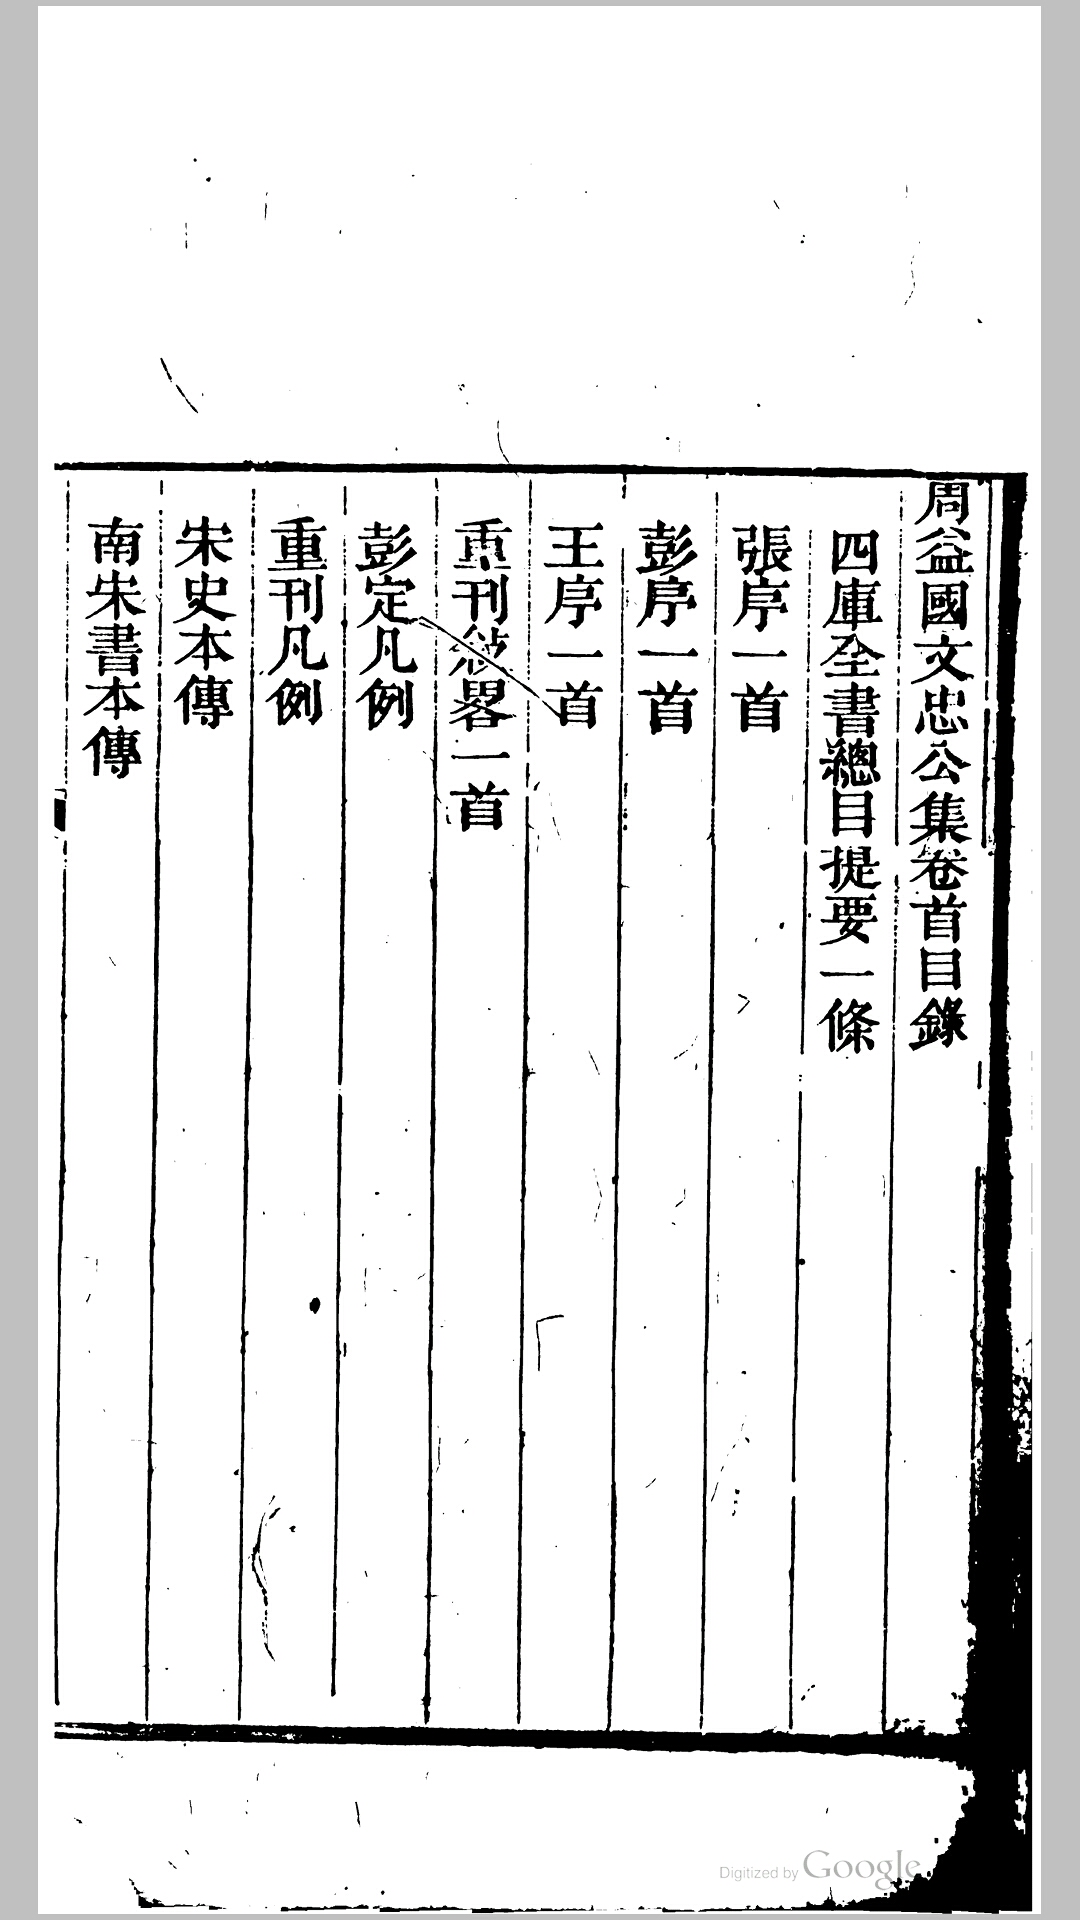 周益國文忠公集卷首目錄
四庫全書總目提要一條
張序一首
彭序一首
王序一首
重刊敍畧一首
彭定凡例
重刊凡例
宋史本傳
南宋書本傳
Digitized by Google